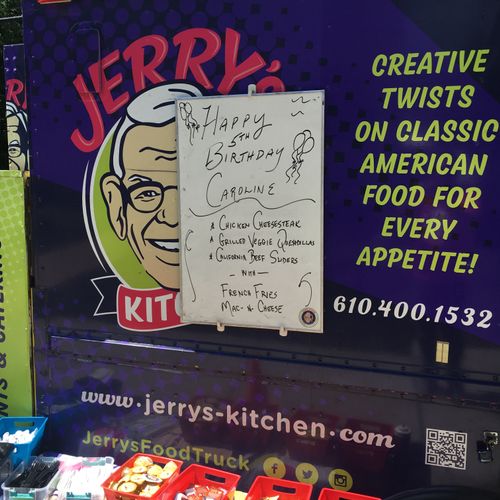 JERRY's
KIT
HAPPY
5TH
BIRTHDAY
CAROLINE
CHICKEN CHEESESTEAK
GRILLED VEGGIE QUESADILLAS
CALIFORNIA BEEF SLIDERS
- WITH -
FRENCH FRIES
MAC-N-CHEESE
CREATIVE
TWISTS
ON CLASSIC
AMERICAN
FOOD FOR
EVERY
APPETITE!
610.400.1532
www.jerrys-kitchen.com
JerrysFoodTruck
& CATERING